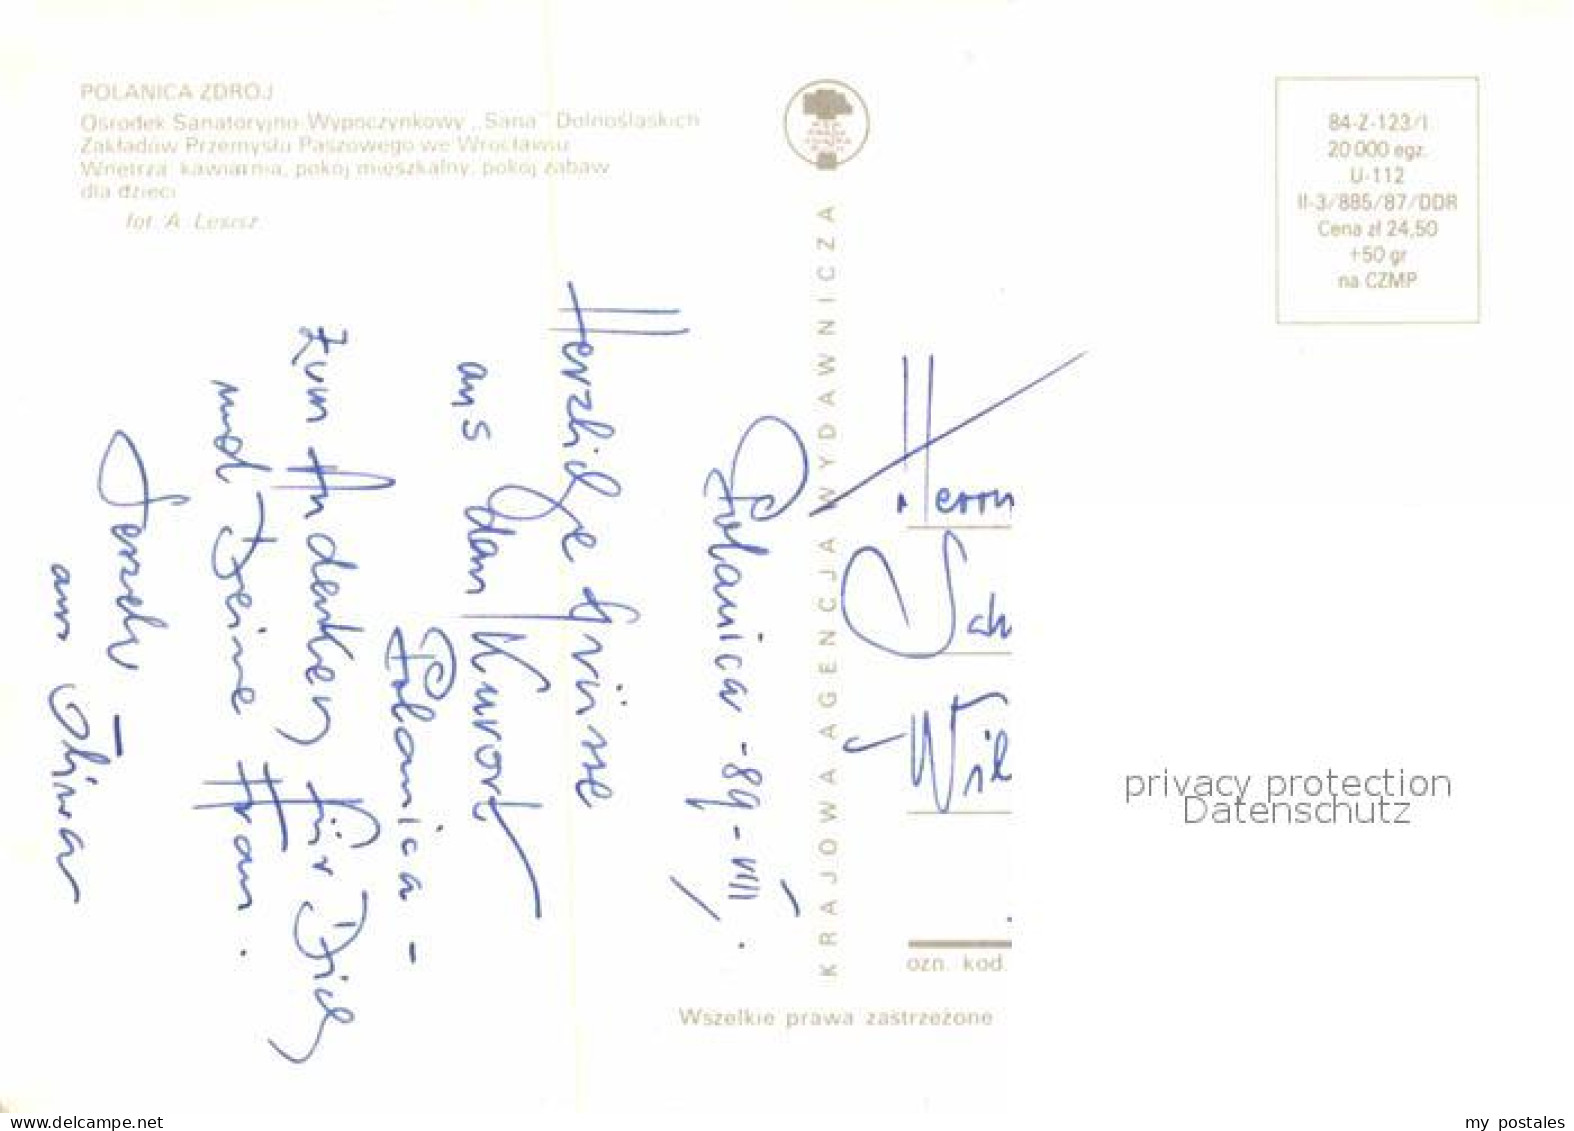 POLANICA ZDRÓJ
Ośrodek Sanatoryjno Wypoczynkowy „Sana" Dolnośląskich
Zakładów Przemysłu Paszowego we Wrocławiu
Wnętrza: kawiarnia, pokój mieszkalny, pokój zabaw
dla dzieci
fot. A.
84-Z-123/I
20 000 egz.
U-112
II-3/885/87/DDR
Cena zł 24,50
+50 gr
na CZMP
KRAJOWA AGENCJA WYDAWNICZA
Polanica - 89 - VIII.
Herzliche Grüsse
aus dam Kurort
Polanica -
zum Andenken für Dich
und Deine Frau.
Herrn
Sch
Wil
ozn. kod.
Wszelkie prawa zastrzeżone
privacy protection
Datenschutz
www.delcampe.net
my postales